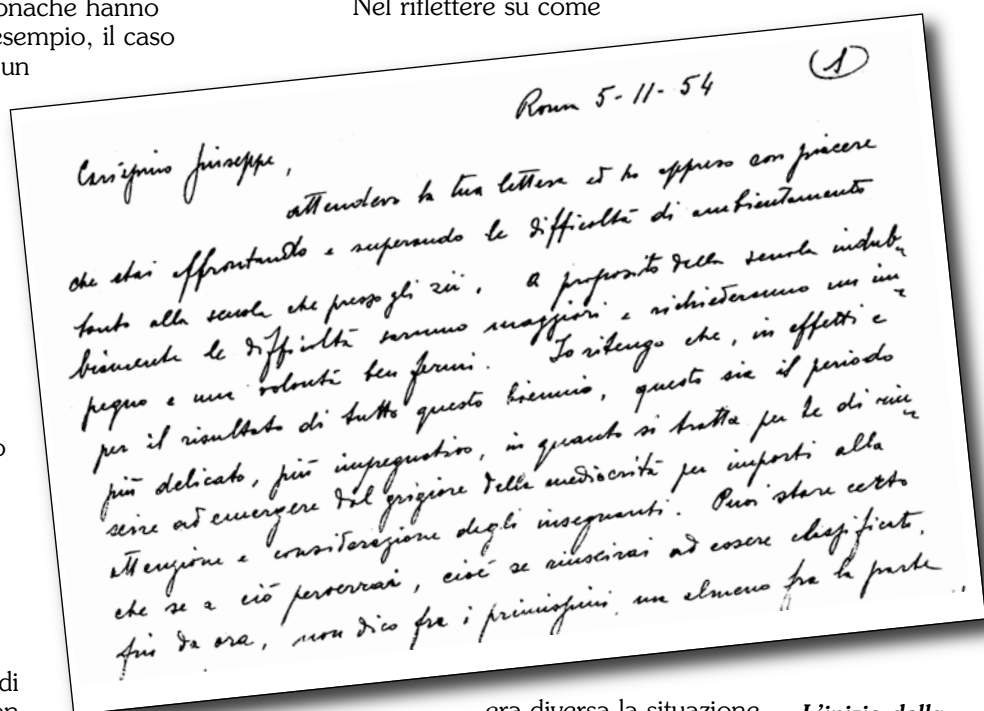 onache hanno
esempio, il caso
un
Nel riflettere su come
1
Roma 5-11-54
Carissimo Giuseppe,
attendevo la tua lettera ed ho appreso con piacere
che stai affrontando e superando le difficoltà di ambientamento
tanto alla scuola che presso gli zii. A proposito della scuola indub-
biamente le difficoltà saranno maggiori e richiederanno un im-
pegno e una volontà ben fermi. Io ritengo che, in effetti e
per il risultato di tutto questo biennio, questo sia il periodo
più delicato, più impegnativo, in quanto si tratta per te di riu-
scire ad emergere dal grigiore della mediocrità per importi alla
attenzione e considerazione degli insegnanti. Puoi stare certo
che se a ciò perverrai, cioè se riuscirai ad essere classificato,
fin da ora, non dico fra i primissimi, ma almeno fra la parte
o
di
on
era diversa la situazione
L'inizio della